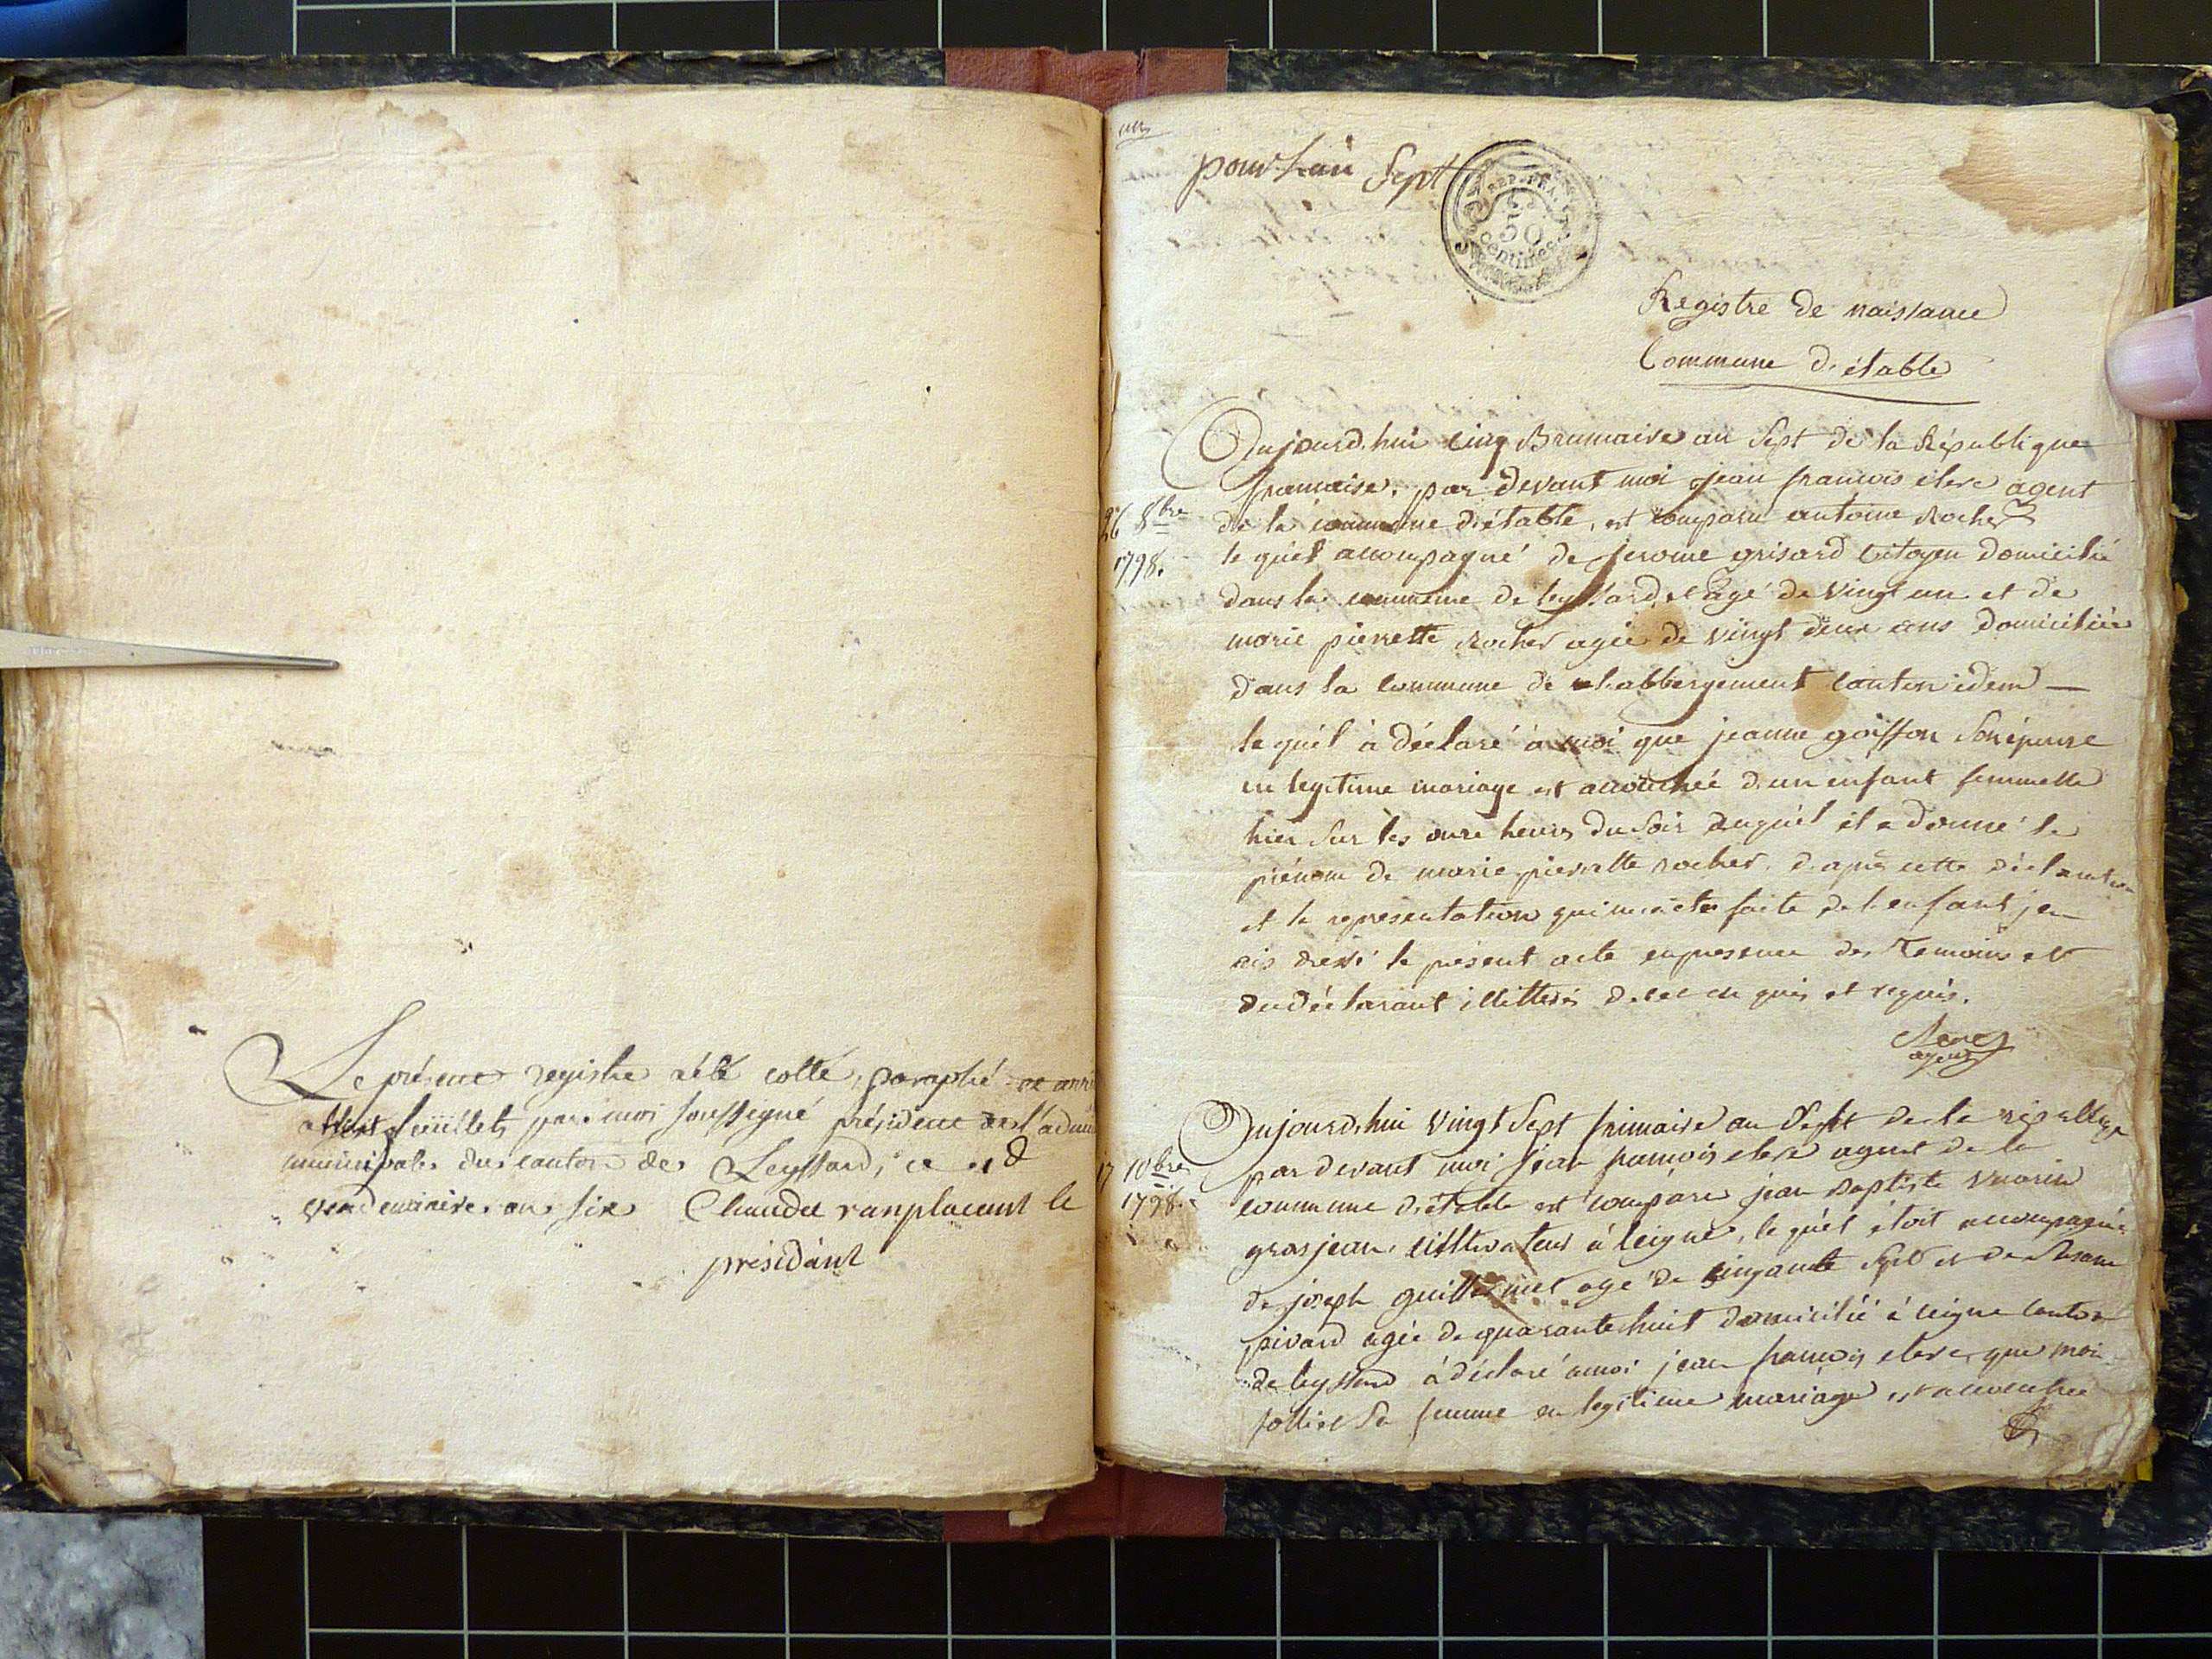 Le présent registre a été cotté, paraphé
feuillets par moi soussigné président de l'admi
municipale du canton de Leyssard, ce 1d
vendemiaire an six Chaudet ranplacent le
présidant
pour L'an Sept
REP. FRA.
50
centimes
Registre de naissance
Commune d'étable
Aujourd'hui cinq Brumaire an Sept de la République
francaise. par devant moi jean francois clerc agent
26 8bre
1798.
de la commune d'étable, est comparu antoine Rocher
le quel accompagné de jerome grisard Citoyen domicilié
dans la commune de leyssard, et agé de vingt un et de
marie pierrette Rocher agée de vingt deux ans domiciliée
dans la commune de l'abbergement canton idem —
le quel à déclaré à moi que jeanne goiffon Son épouse
en legitime mariage est accouchée d'un enfant femmelle
hier Sur les onze heures du Soir auquel il a donné le
prénom de marie pierrette rocher d'après cette déclaration
et la representation qui m'a été faite de l'enfant j'en
ais dressé le présent acte en presence des Temoins et
du déclarant illitterés de ce en quis et requis.
Clerc
agent
Aujourd'hui vingt Sept frimaire an Sept de la
17 10bre
1798.
par devant moi jean francois clerc agent de la
commune d'étable est comparu jean Baptiste
grosjean, cultivateur à leigne, le quel étoit accompagné
de joseph guillermet agé de cinquante Sept et de Susane
pivard agée de quarante huit domicilié à leigne canton
de leyssard à déclaré a moi jean francois clerc que
Sa femme en legitime mariage est accouchée